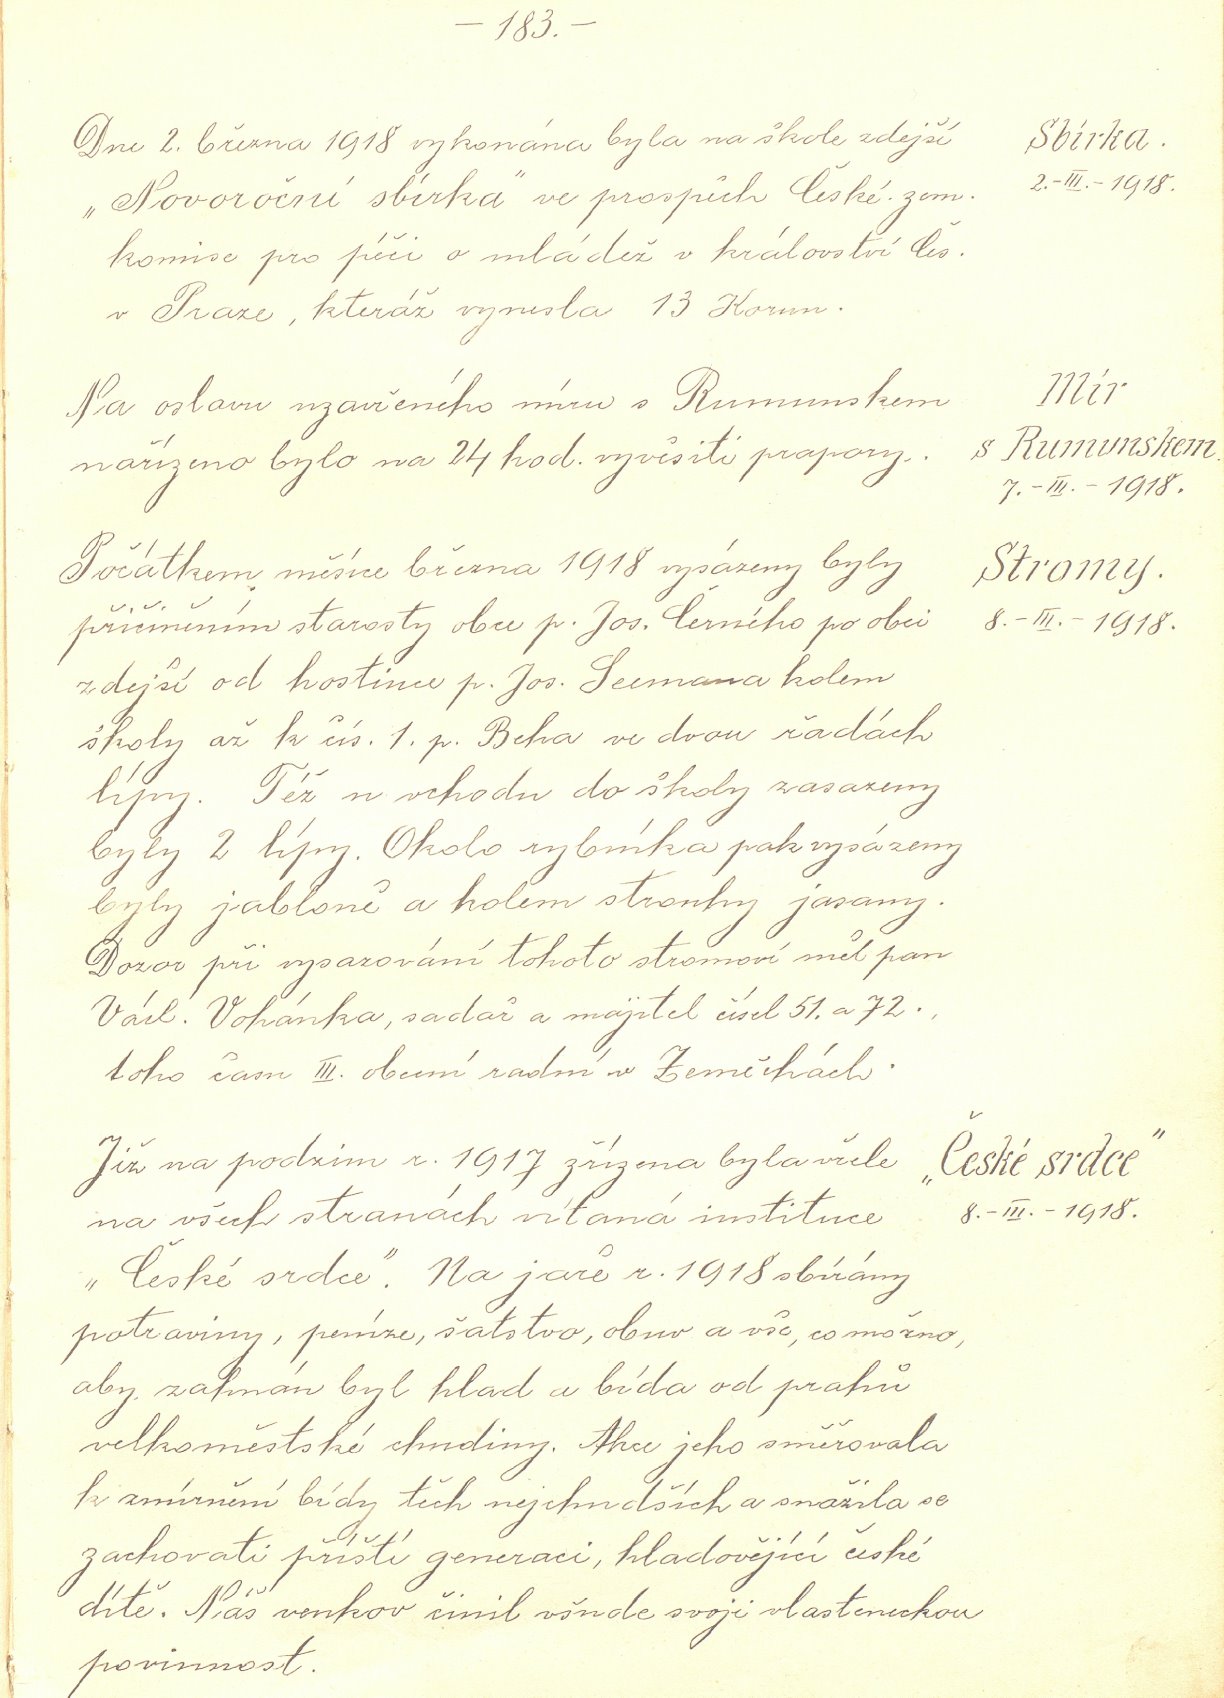 — 183. —
Dne 2. března 1918 vykonána byla na škole zdejší
„Novoroční sbírka" ve prospěch České. zem.
komise pro péči o mládež v království Čes.
v Praze, kteráž vynesla 13 Korun.
Sbírka.
2.-III.-1918.
Na oslavu uzavřeného míru s Rumunskem
nařízeno bylo na 24 hod. vyvěsiti prapory.
Mír
s Rumunskem.
7.-III.-1918.
Počátkem měsíce března 1918 vysázeny byly
přičiněním starosty obce p. Jos. Černého po obci
zdejší od hostince p. Jos. Seemana kolem
školy až k čís. 1. p. Beha ve dvou řadách
lípy. Též u vchodu do školy zasazeny
byly 2 lípy. Okolo rybníka pak vysázeny
byly jabloně a kolem strouhy jasany.
Dozor při vysazování tohoto stromoví měl pan
Václ. Vohánka, sadař a majitel čísel 51. a 72.,
toho času III. obecní radní v Zeměchách.
Stromy.
8.-III.-1918.
Již na podzim r. 1917 zřízena byla vřele
na všech stranách vítaná instituce
„České srdce". Na jaře r. 1918 sbírány
potraviny, peníze, šatstvo, obuv a vše, co možno,
aby zahnán byl hlad a bída od prahů
velkoměstské chudiny. Akce jeho směřovala
k zmírnění bídy těch nejchudších a snažila se
zachovati příští generaci, hladovějící české
dítě. Náš venkov činil všude svoji vlasteneckou
povinnost.
„České srdce"
8.-III.-1918.